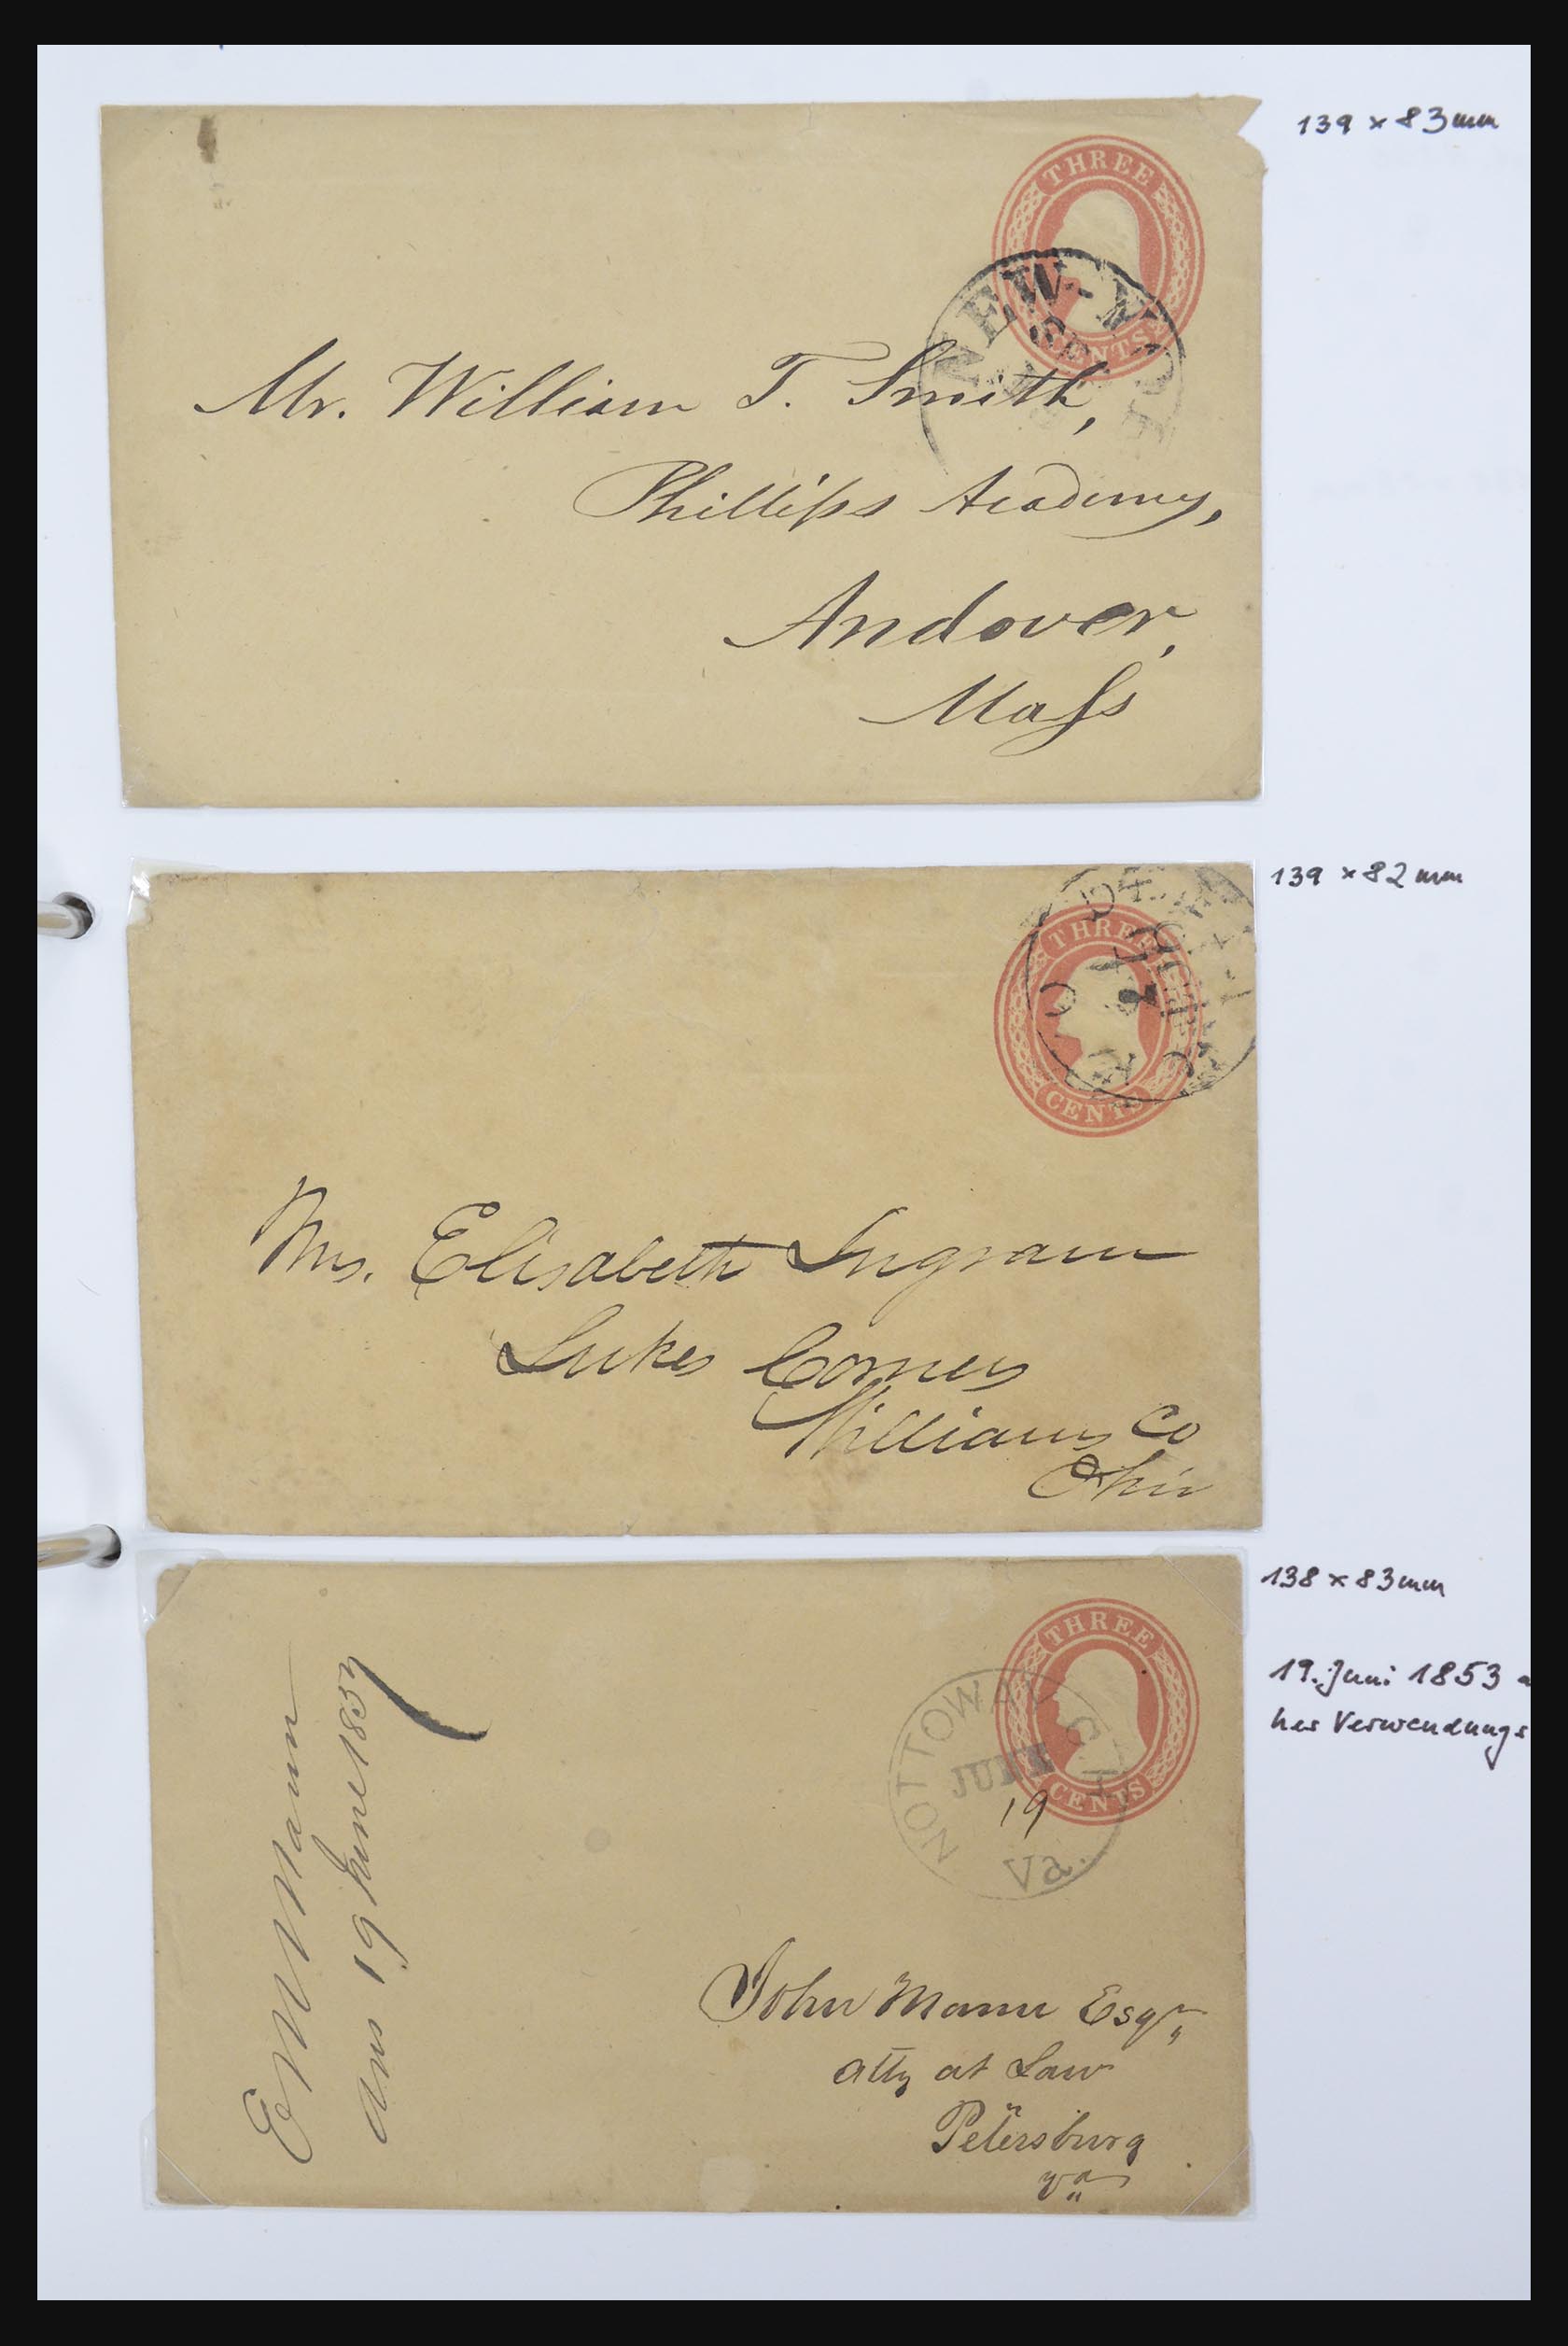 139 x 83 mm
THREE
CENTS
NEW-YO
SE
Mr. William T. Smith,
Phillips Academy,
Andover,
Maſs
139 x 82 mm
THREE
CENTS
Mrs. Elisabeth Ingram
Lukes Corners
Williams Co
Ohio
138 x 83 mm
19. Juni 1853
her Verwendungs
THREE
CENTS
NOTTOWAY C.H.
JUNE
19
Va.
E M Mann
Ans 19 June 1853
John Mann Esqr
atty at Law
Petersburg
Va